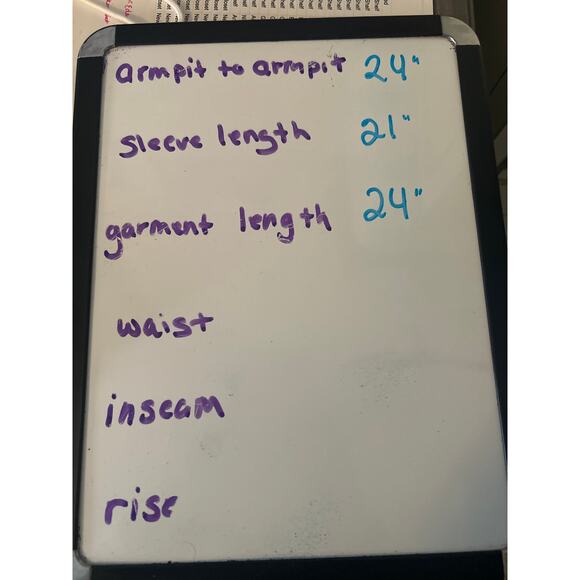 armpit to armpit 24"
sleeve length 21"
garment length 24"
waist
inseam
rise